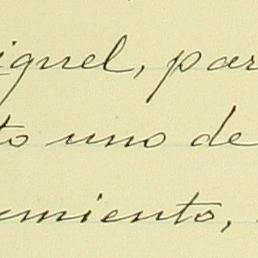 iguel, par
to uno de
umiento,